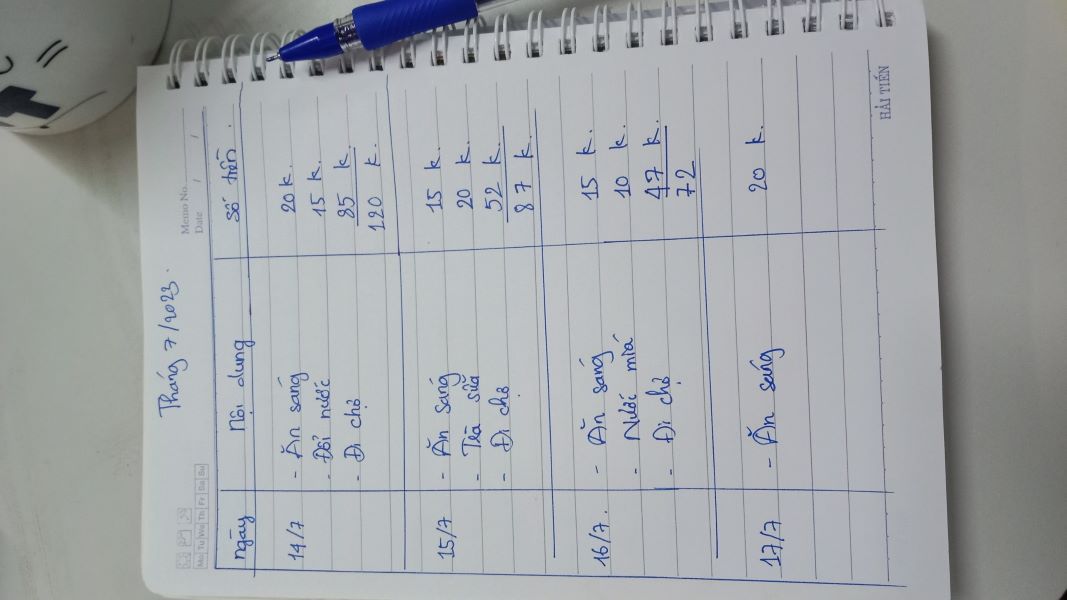 Tháng 7/2023.
Memo No.
Mo Tu We Th Fr Sa Su
Date / /
ngày nội dung số tiền.
14/7 - Ăn sáng 20 k.
- Đổi nước 15 k.
- Đi chợ 85 k.
120 k.
15/7 - Ăn sáng 15 k.
- Trà sữa 20 k.
- Đi chợ 52 k.
87 k.
16/7. - Ăn sáng 15 k.
- Nước mía 10 k.
- Đi chợ 47 k.
72
17/7 - Ăn sáng 20 k.
HẢI TIẾN